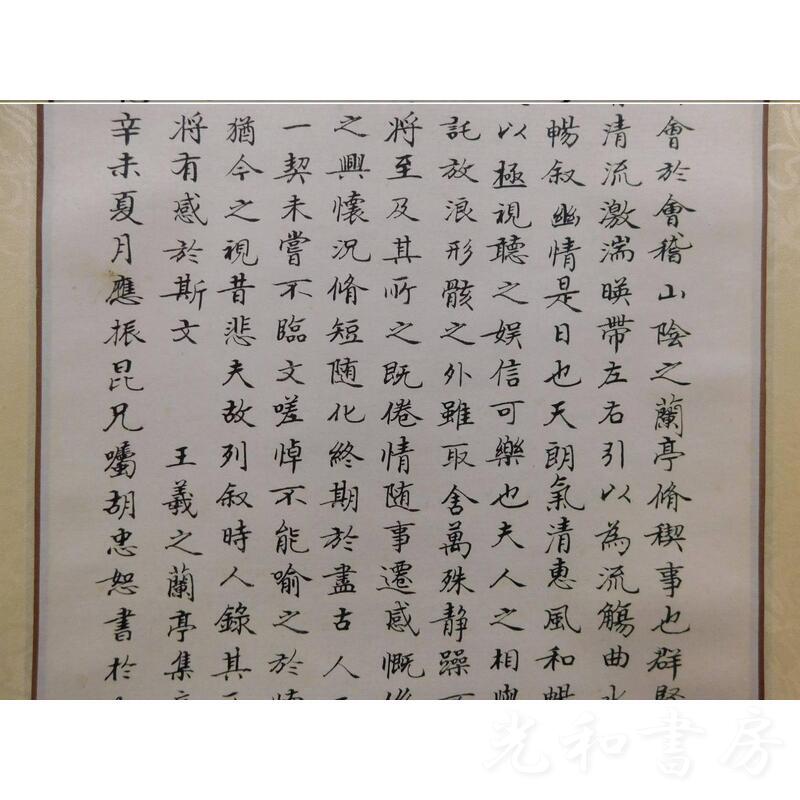 會於會稽山陰之蘭亭脩稧事也群賢
清流激湍暎帶左右引以為流觴曲水
暢叙幽情是日也天朗氣清惠風和暢
以極視聽之娛信可樂也夫人之相與
託放浪形骸之外雖取舍萬殊静躁不
將至及其所之既倦情随事遷感慨係
之興懷況脩短随化終期於盡古人
一契未嘗不臨文嗟悼不能喻之於懷
猶今之視昔悲夫故列叙時人錄其
將有感於斯文 王羲之蘭亭集
辛未夏月應振昆兄囑胡忠恕書於
光和書房